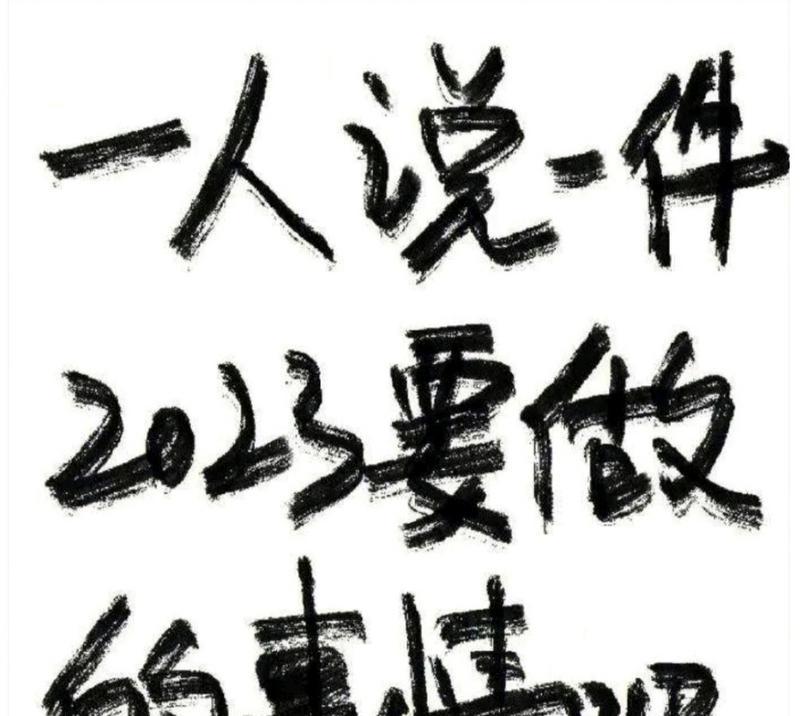 一人说一件
2023要做
的事情吧